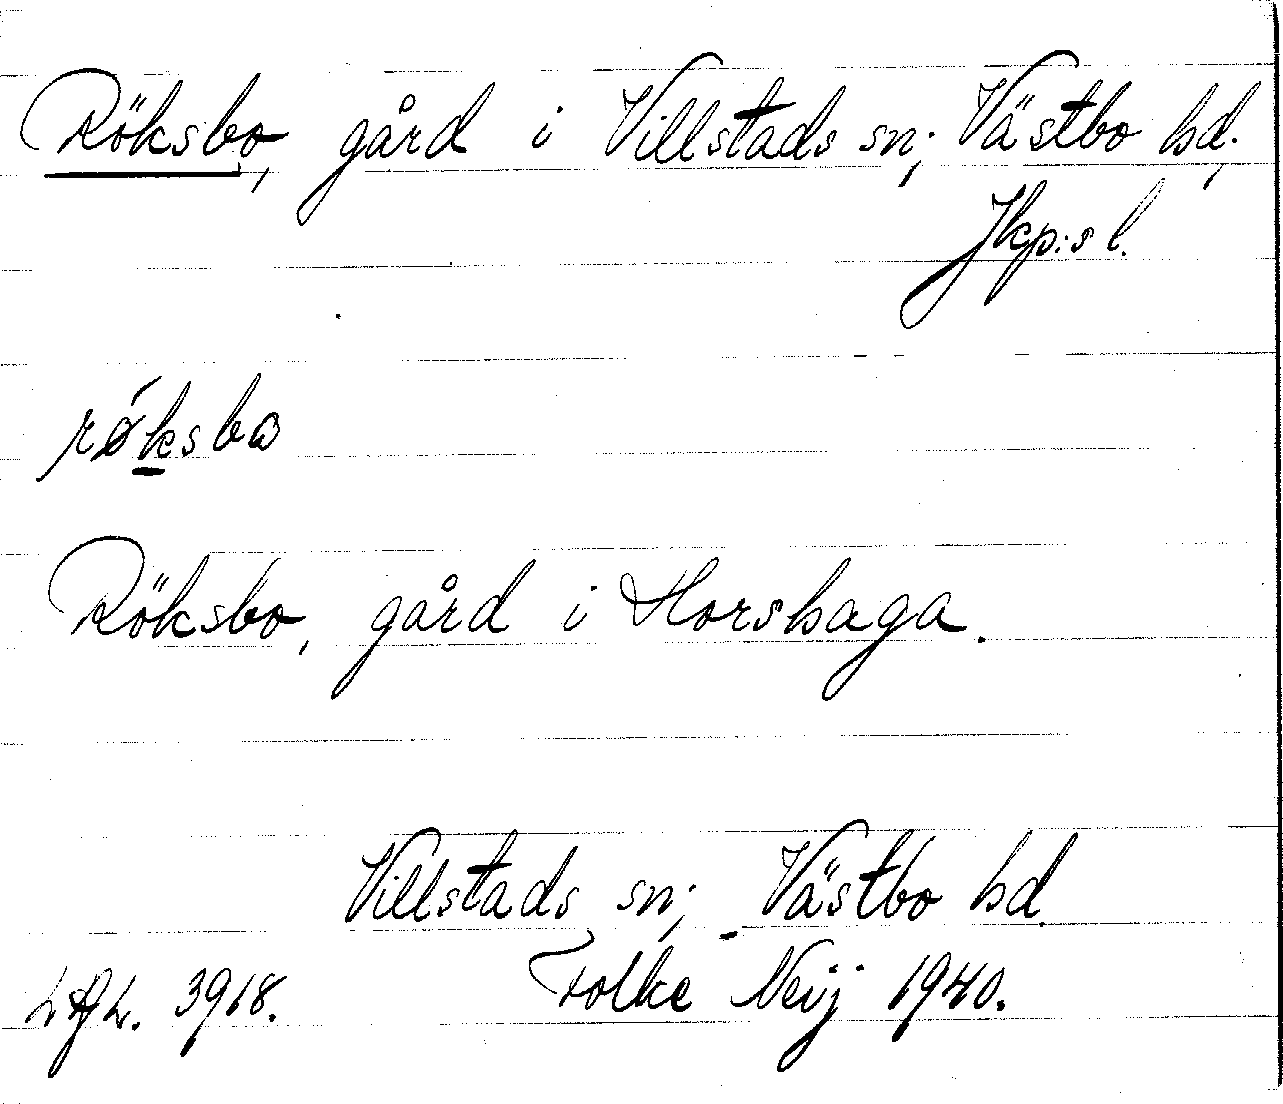 Röksbo, gård i Villstads sn; Västbo hd.,
Jkp:s l.
röksbω
Röksbo, gård i Horshaga.
Villstads sn; Västbo hd.
3918. Folke Neij 1940.